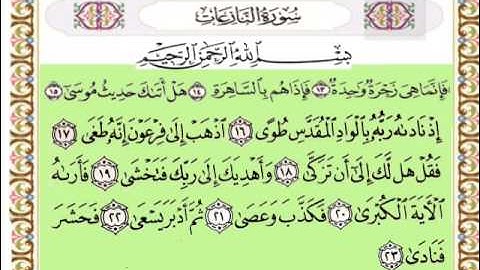 سُورَةُ النَّازِعَاتِ
بِسْمِ اللَّهِ الرَّحْمَٰنِ الرَّحِيمِ
فَإِنَّمَا هِيَ زَجْرَةٌ وَاحِدَةٌ ١٣ فَإِذَا هُم بِالسَّاهِرَةِ ١٤ هَلْ أَتَاكَ حَدِيثُ مُوسَىٰ ١٥
إِذْ نَادَاهُ رَبُّهُ بِالْوَادِ الْمُقَدَّسِ طُوًى ١٦ اذْهَبْ إِلَىٰ فِرْعَوْنَ إِنَّهُ طَغَىٰ ١٧
فَقُلْ هَل لَّكَ إِلَىٰ أَن تَزَكَّىٰ ١٨ وَأَهْدِيَكَ إِلَىٰ رَبِّكَ فَتَخْشَىٰ ١٩ فَأَرَاهُ
الْآيَةَ الْكُبْرَىٰ ٢٠ فَكَذَّبَ وَعَصَىٰ ٢١ ثُمَّ أَدْبَرَ يَسْعَىٰ ٢٢ فَحَشَرَ
فَنَادَىٰ ٢٣